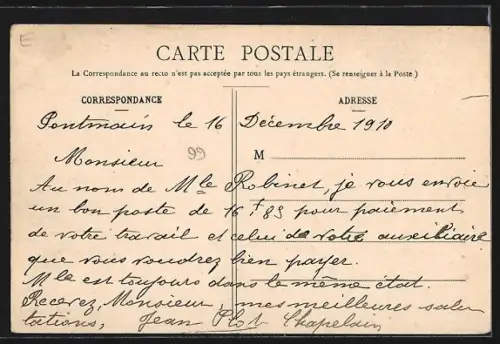 E
CARTE POSTALE
La Correspondance au recto n'est pas acceptée par tous les pays étrangers. (Se renseigner à la Poste)
CORRESPONDANCE
ADRESSE
Pontmain le 16 Décembre 1910
99
M
Monsieur
Au nom de Mlle Robinet, je vous envoie
un bon poste de 16f,83 pour paiement
de votre travail et celui de votre auxiliaire
que vous voudrez bien payer.
Mlle est toujours dans le même état.
Recevez, Monsieur, mes meilleures salu
tations, Jean Plot Chapelain